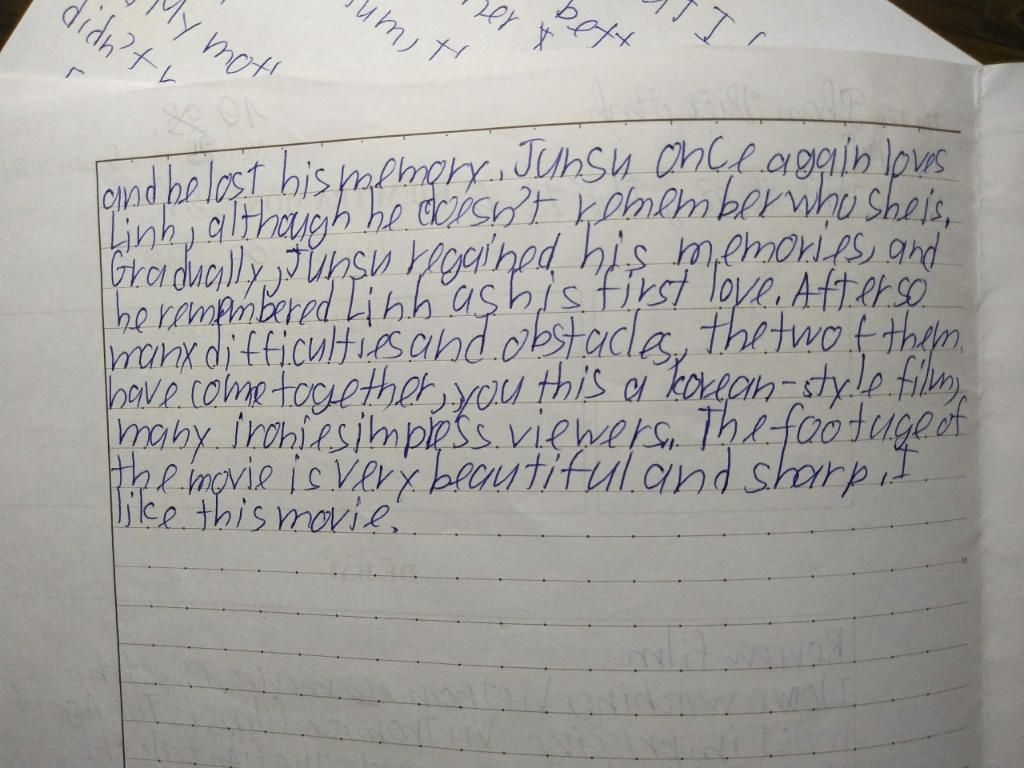 and he lost his memory. Junsu once again loves
Linh, although he doesn't remember who she is.
Gradually, Junsu regained his memories, and
he remembered Linh as his first love. After so
many difficulties and obstacles, the two f them
have come together, you this a korean-style film,
many ironies impress viewers. The footuge of
the movie is very beautiful and sharp. I
like this movie.
Review film